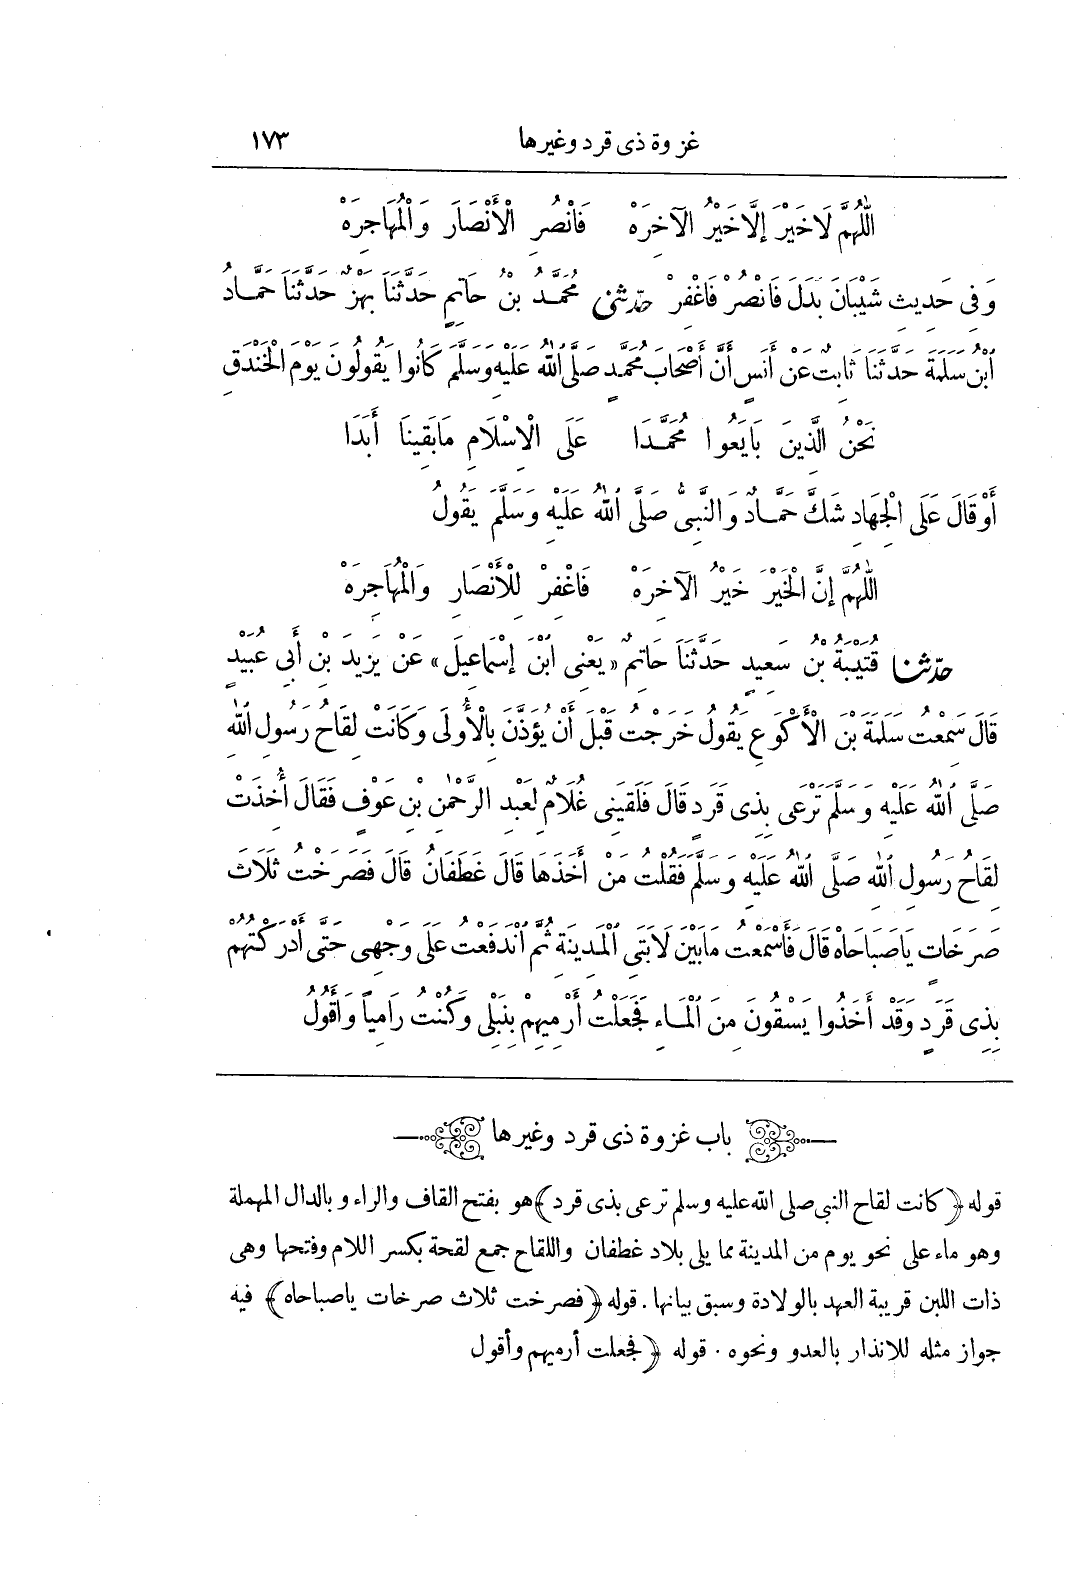 غزوة ذى قرد وغيرها ١٧٣
اللّٰهُمَّ لَا خَيْرَ إِلَّا خَيْرُ الْآخِرَهْ فَانْصُرِ الْأَنْصَارَ وَالْمُهَاجِرَهْ
وَفِى حَدِيثِ شَيْبَانَ بَدَلَ فَانْصُرْ فَاغْفِرْ حَدَّثَنِى مُحَمَّدُ بْنُ حَاتِمٍ حَدَّثَنَا بَهْزٌ حَدَّثَنَا حَمَّادُ
ابْنُ سَلَمَةَ حَدَّثَنَا ثَابِتٌ عَنْ أَنَسٍ أَنَّ أَصْحَابَ مُحَمَّدٍ صَلَّى اللّٰهُ عَلَيْهِ وَسَلَّمَ كَانُوا يَقُولُونَ يَوْمَ الْخَنْدَقِ
نَحْنُ الَّذِينَ بَايَعُوا مُحَمَّدَا عَلَى الْإِسْلَامِ مَا بَقِينَا أَبَدَا
أَوْ قَالَ عَلَى الْجِهَادِ شَكَّ حَمَّادٌ وَالنَّبِىُّ صَلَّى اللّٰهُ عَلَيْهِ وَسَلَّمَ يَقُولُ
اللّٰهُمَّ إِنَّ الْخَيْرَ خَيْرُ الْآخِرَهْ فَاغْفِرْ لِلْأَنْصَارِ وَالْمُهَاجِرَهْ
حَدَّثَنَا قُتَيْبَةُ بْنُ سَعِيدٍ حَدَّثَنَا حَاتِمٌ «يَعْنِى ابْنَ إِسْمَاعِيلَ» عَنْ يَزِيدَ بْنِ أَبِى عُبَيْدٍ
قَالَ سَمِعْتُ سَلَمَةَ بْنَ الْأَكْوَعِ يَقُولُ خَرَجْتُ قَبْلَ أَنْ يُؤَذَّنَ بِالْأُولَى وَكَانَتْ لِقَاحُ رَسُولِ اللّٰهِ
صَلَّى اللّٰهُ عَلَيْهِ وَسَلَّمَ تَرْعَى بِذِى قَرَدٍ قَالَ فَلَقِيَنِى غُلَامٌ لِعَبْدِ الرَّحْمٰنِ بْنِ عَوْفٍ فَقَالَ أُخِذَتْ
لِقَاحُ رَسُولِ اللّٰهِ صَلَّى اللّٰهُ عَلَيْهِ وَسَلَّمَ فَقُلْتُ مَنْ أَخَذَهَا قَالَ غَطَفَانُ قَالَ فَصَرَخْتُ ثَلَاثَ
صَرَخَاتٍ يَا صَبَاحَاهْ قَالَ فَأَسْمَعْتُ مَا بَيْنَ لَابَتَىِ الْمَدِينَةِ ثُمَّ انْدَفَعْتُ عَلَى وَجْهِى حَتَّى أَدْرَكْتُهُمْ
بِذِى قَرَدٍ وَقَدْ أَخَذُوا يَسْقُونَ مِنَ الْمَاءِ فَجَعَلْتُ أَرْمِيهِمْ بِنَبْلِى وَكُنْتُ رَامِياً وَأَقُولُ
باب غزوة ذى قرد وغيرها
قوله ﴿كانت لقاح النبى صلى الله عليه وسلم ترعى بذى قرد﴾ هو بفتح القاف والراء وبالدال المهملة
وهو ماء على نحو يوم من المدينة مما يلى بلاد غطفان واللقاح جمع لقحة بكسر اللام وفتحها وهى
ذات اللبن قريبة العهد بالولادة وسبق بيانها . قوله ﴿فصرخت ثلاث صرخات ياصباحاه﴾ فيه
جواز مثله للانذار بالعدو ونحوه . قوله ﴿فجعلت أرميهم وأقول